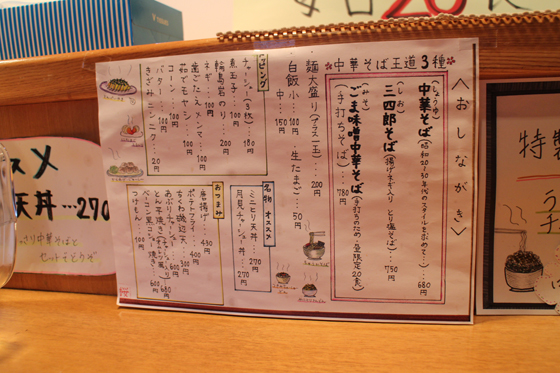 〈おしながき〉
中華そば王道3種
(しょうゆ)
中華そば(昭和20・30年代のスタイルを求めて…)… 680円
(しお)
三四郎そば(揚げネギ入り とり塩そば)… 750円
(みそ)
ごま味噌中華そば(手打ちのため・昼限定20食)
(手打ちそば)… 780円
麺大盛り(プラス一玉)… 200円
白飯 小… 100円
中… 150円
生たまご… 50円
ッピング
チャーシュー(3枚)… 180円
煮玉子… 100円
輪島岩のり… 200円
ネギ… 100円
炭だこスメンマ… 100円
茹でモヤシ… 100円
コーン… 100円
バター… 100円
きざみニンニク… 20円
名物 オススメ
ミニとり天丼… 270円
月見チャーシュー丼… 270円
おつまみ
唐揚げ… 430円
ポテトフライ… 400円
ちくわ磯辺天… 300円
スメ
天丼…270
っさり中華そばと
セットでどうぞ
特